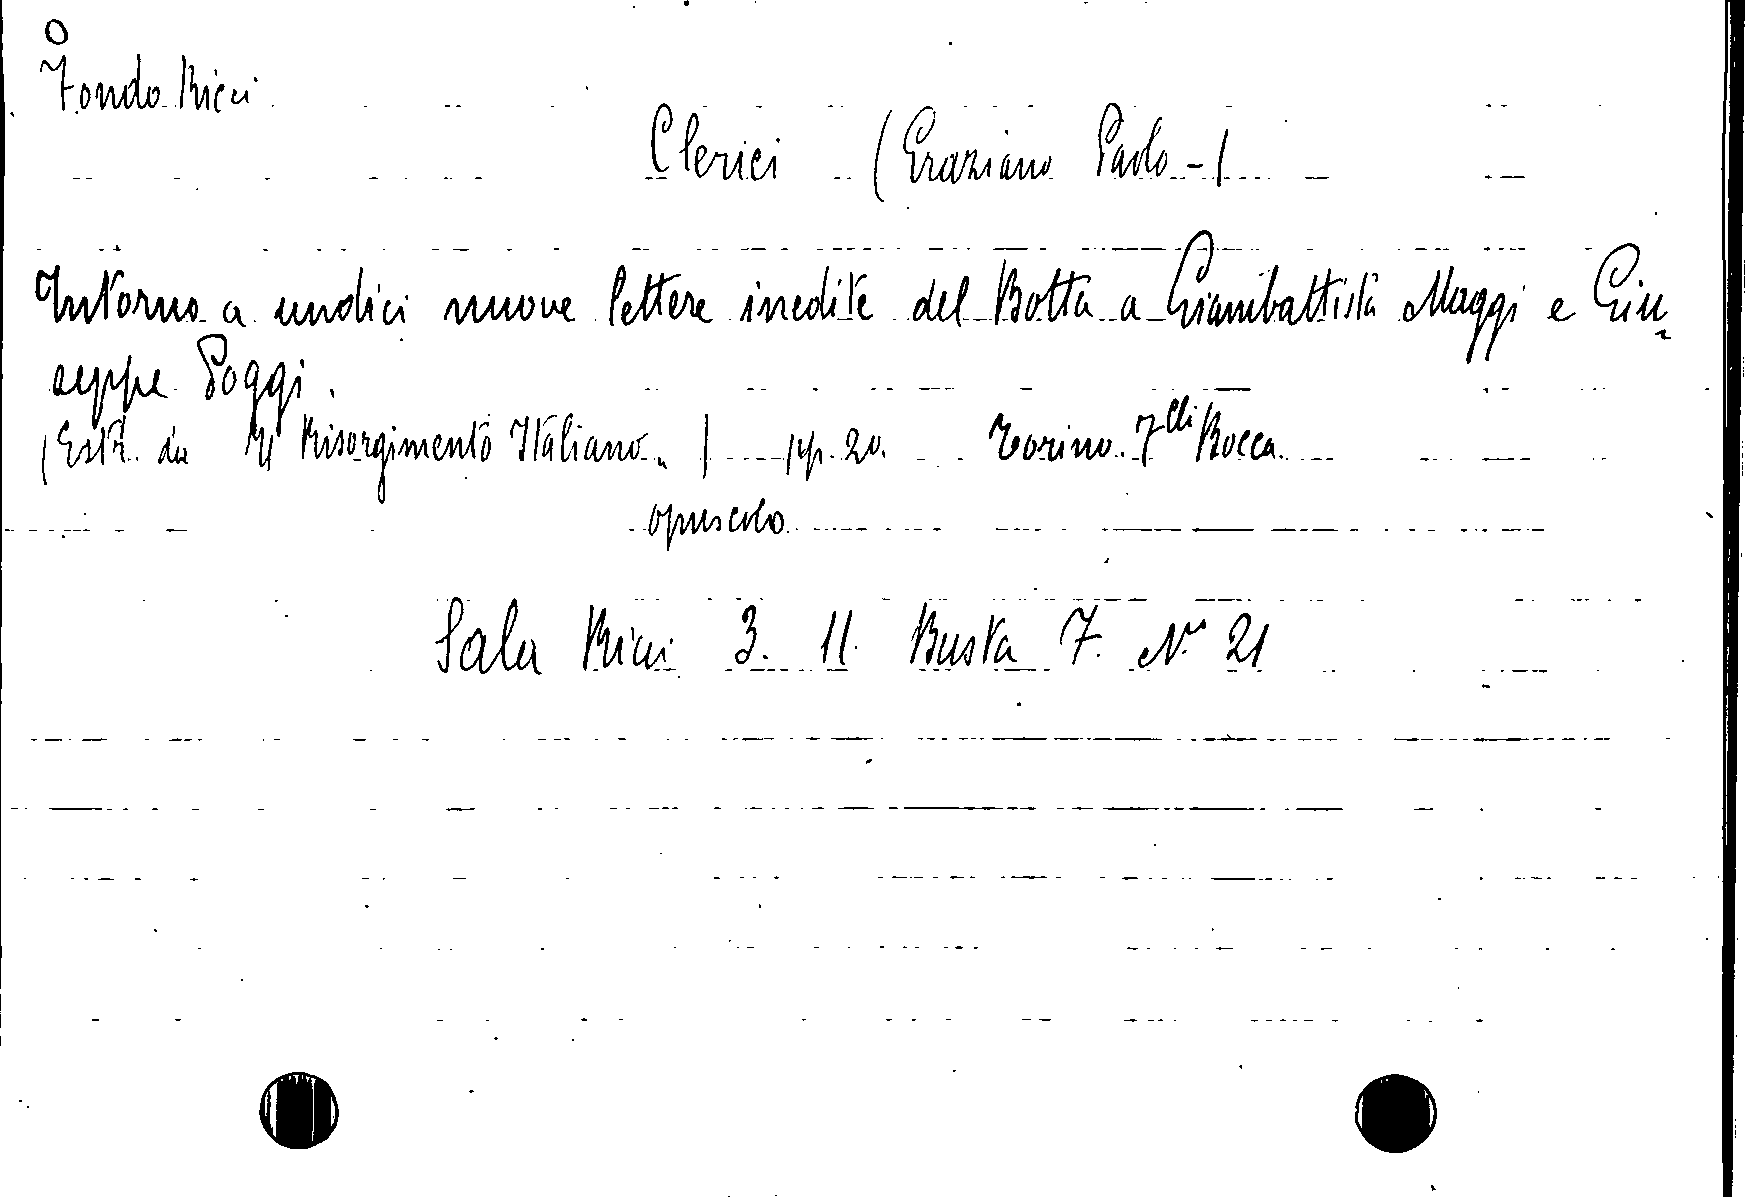 O
Fondo Ricci
Clerici (Graziano Paolo-)
Intorno a undici nuove lettere inedite del Botta a Giambattista Maggi e Giu=
seppe Poggi.
(Estr. da "Il Risorgimento Italiano") pp. 20. Torino. Flli Bocca.
opuscolo
Sala Ricci 3. 11. Busta 7. No 21